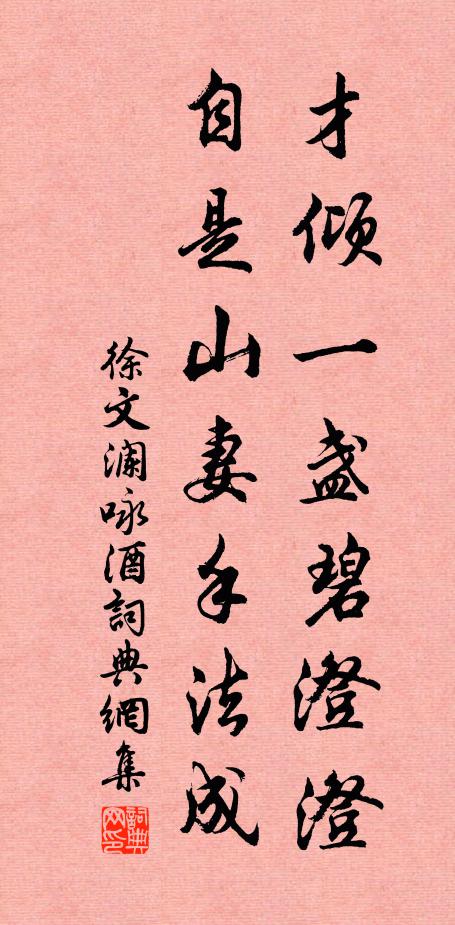 才倾一盏碧澄澄
自是山妻手法成
徐文澜咏酒詞典網集
詞典网印